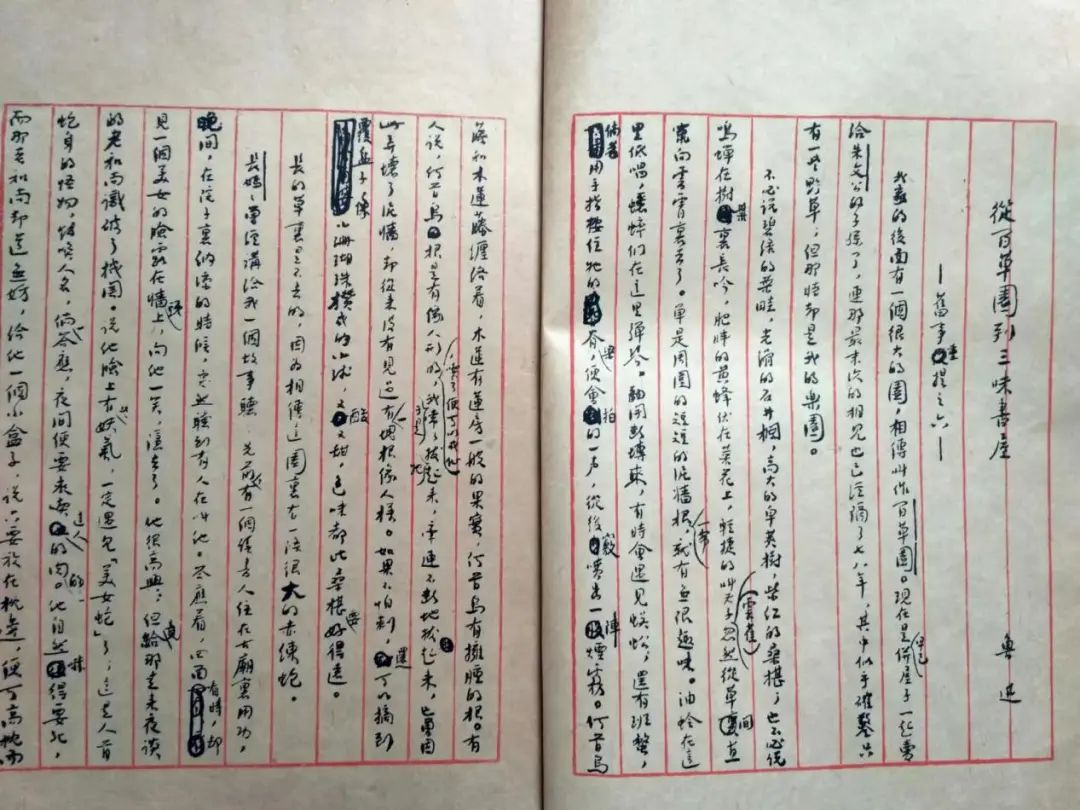 從百草園到三味書屋
魯迅
—舊事重提之六—
我家的後面有一個很大的園,相傳叫作百草園。現在是早已併屋子一起賣
給朱文公的子孫了,連那最末次的相見也已經隔了七八年,其中似乎確鑿只
有一些野草,但那時却是我的樂園。
不必說碧綠的菜畦,光滑的石井欄,高大的皂莢樹,紫红的桑椹;也不必說
鳴蟬在樹葉裏長吟,肥胖的黄蜂伏在菜花上,輕捷的叫天子(雲雀)忽然從草間直
竄向雲霄裏去了。單是周圍的短短的泥牆根一帶,就有無限趣味。油蛉在這
里低唱,蟋蟀們在這里彈琴。翻開斷塼來,有時會遇見蜈蚣;還有斑蝥,
倘若用手指按住牠的脊梁,便會拍的一声,從後竅噴出一陣煙霧。何首烏
藤和木蓮藤纏絡着,木蓮有蓮房一般的果實,何首烏有擁腫的根。有
人說,何首烏根是有像人形的,吃了便可以成仙,我於是常常拔牠起來,牽連不斷地拔起來,也曾因
此弄壞了泥牆,却從來沒有見過有一塊根像人樣。如果不怕刺,還可以摘到
覆盆子,像小珊瑚珠攢成的小球,又酸又甜,色味都比桑椹要好得遠。
長的草裏是不去的,因為相傳這園裏有一條很大的赤練蛇。
長媽媽曾經講給我一個故事聽:先前,有一個讀書人住在古廟裏用功,
晚間,在院子裏納凉的時候,突然聽到有人在叫他。答應着,四面看時,却
見一個美女的臉露在牆頭上,向他一笑,隱去了。他很高興;但竟給那走來夜談
的老和尚識破了機關。說他臉上有些妖氣,一定遇見「美女蛇」了;這是人首
蛇身的怪物,能喚人名,倘一答應,夜間便要來吃這人的肉的。他自然嚇得要死,
而那老和尚却道無妨,給他一個小盒子,說只要放在枕邊,便可高枕而